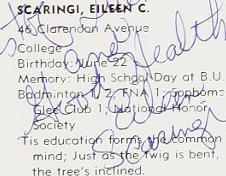 SCARINGI, EILEEN C.
46 Clarendon Avenue
College
Birthday: June 22
Memory: High School Day at B.U.
Badminton 1, 2, FNA 1; Sophomore
Glee Club 1; National Honor
Society
'Tis education forms the common
mind; Just as the twig is bent,
the tree's inclined.
Health
Eileen
Scaringi